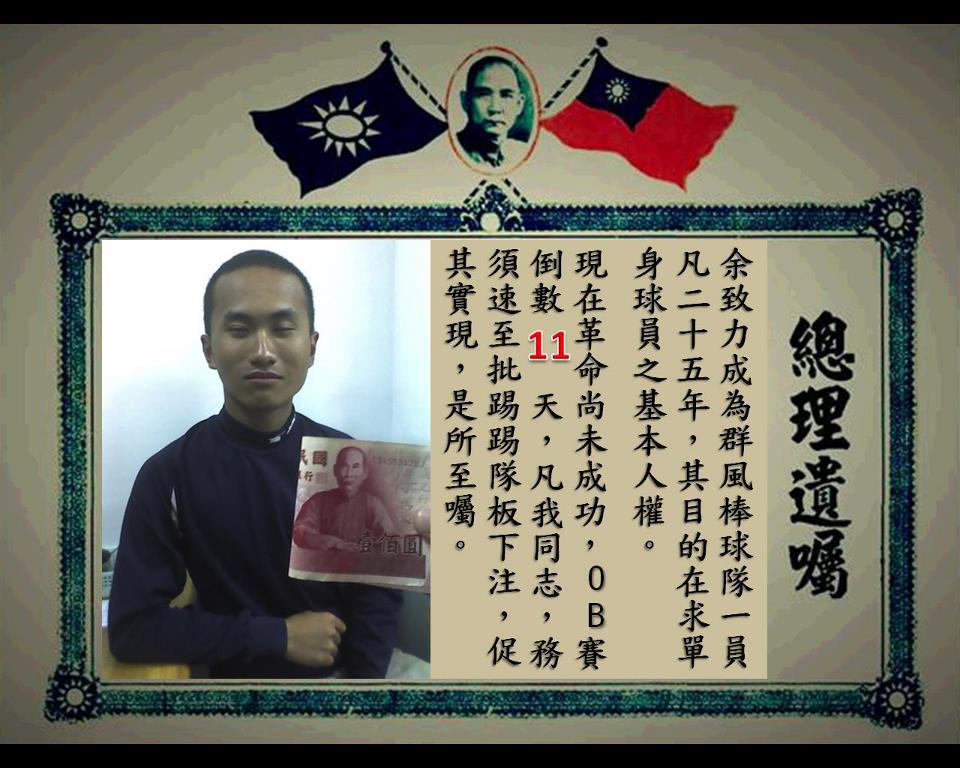 總理遺囑
余致力成為群風棒球隊一員
凡二十五年，其目的在求單
身球員之基本人權。
現在革命尚未成功，OB賽
倒數11天，凡我同志，務
須速至批踢踢隊板下注，促
其實現，是所至囑。
民國
銀行
壹佰圓